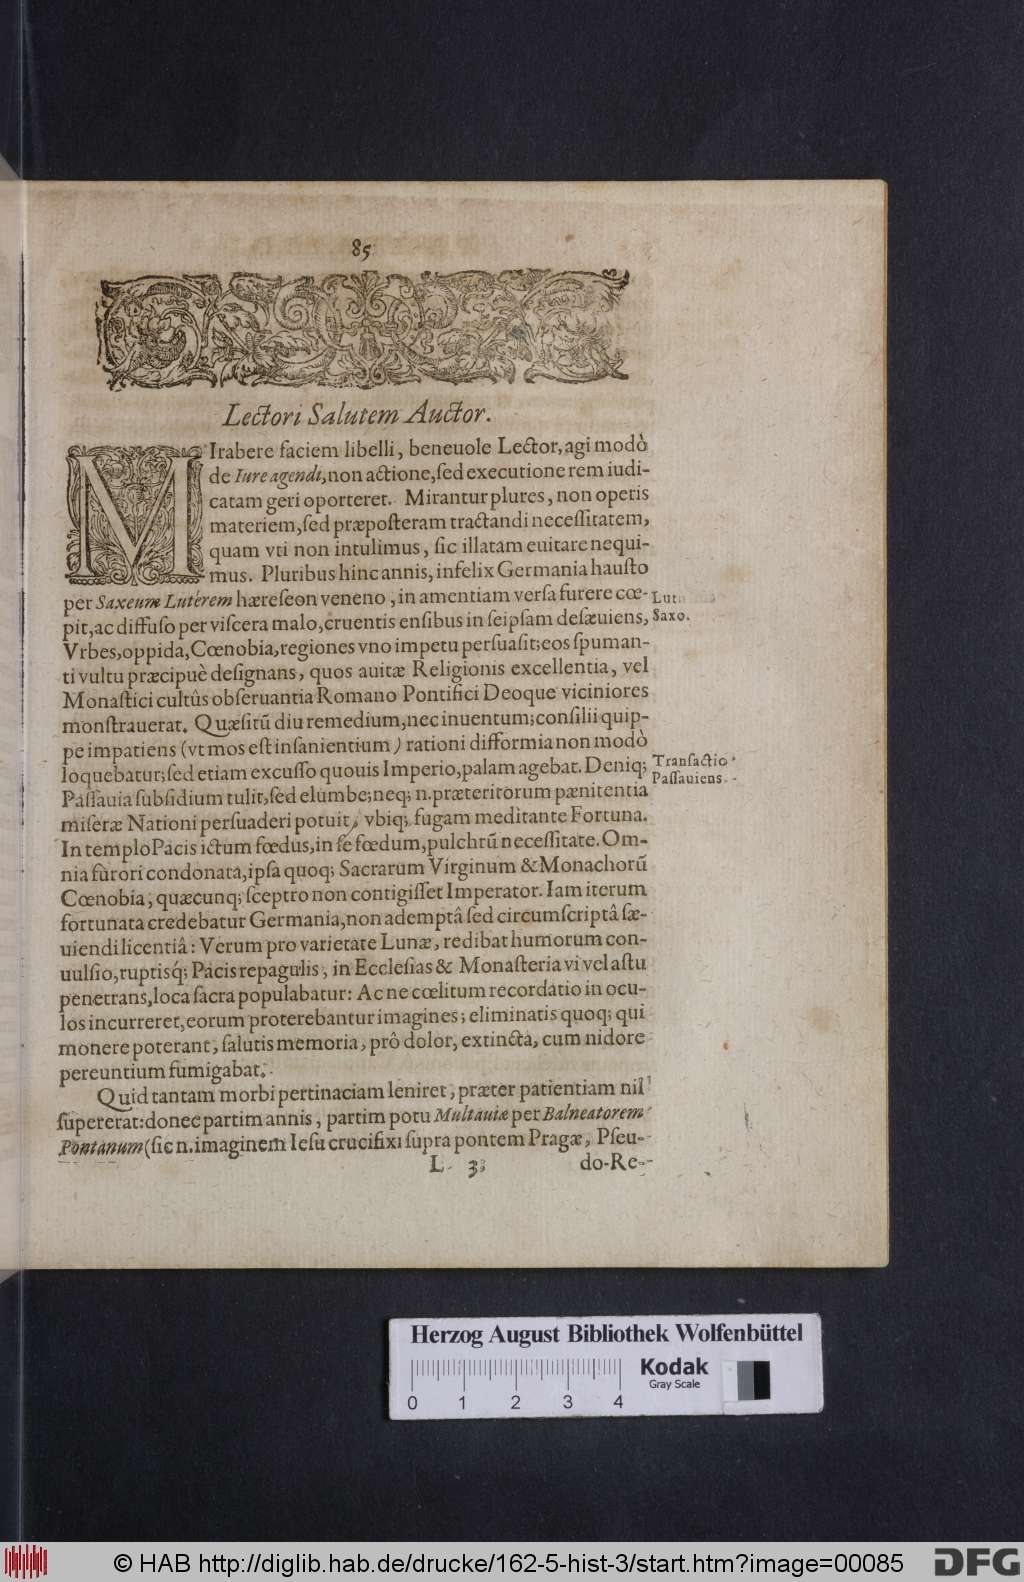 85
Lectori Salutem Auctor.
MIrabere faciem libelli, beneuole Lector, agi modò
de Iure agendi, non actione, ſed executione rem iudi-
catam geri oporteret. Mirantur plures, non operis
materiem, ſed præpoſteram tractandi neceſſitatem,
quam vti non intulimus, ſic illatam euitare nequi-
mus. Pluribus hinc annis, infelix Germania hauſto
per Saxeum Luterem hæreſeon veneno, in amentiam verſa furere cœ-
pit, ac diffuſo per viſcera malo, cruentis enſibus in ſeipſam deſæuiens,
Vrbes, oppida, Cœnobia, regiones vno impetu perſuaſit; eos ſpuman-
ti vultu præcipuè deſignans, quos auitæ Religionis excellentia, vel
Monaſtici cultûs obſeruantia Romano Pontifici Deoque viciniores
monſtrauerat. Quæſitũ diu remedium, nec inuentum; conſilii quip-
pe impatiens (vt mos eſt inſanientium) rationi difformia non modò
loquebatur; ſed etiam excuſſo quouis Imperio, palam agebat. Deniq;
Paſſauia ſubſidium tulit, ſed elumbe; neq; n. præteritorum pænitentia
miſeræ Nationi perſuaderi potuit, vbiq; fugam meditante Fortuna.
In templo Pacis ictum fœdus, in ſe fœdum, pulchrũ neceſſitate. Om-
nia furori condonata, ipſa quoq; Sacrarum Virginum & Monachorũ
Cœnobia; quæcunq; ſceptro non contigiſſet Imperator. Iam iterum
fortunata credebatur Germania, non ademptâ ſed circumſcriptâ ſæ-
uiendi licentiâ: Verum pro varietate Lunæ, redibat humorum con-
uulſio, ruptisq́; Pacis repagulis, in Eccleſias & Monaſteria vi vel aſtu
penetrans, loca ſacra populabatur: Ac ne cœlitum recordatio in ocu-
los incurreret, eorum proterebantur imagines; eliminatis quoq; qui
monere poterant, ſalutis memoria, prô dolor, extincta, cum nidore
pereuntium fumigabat.
Quid tantam morbi pertinaciam leniret, præter patientiam nil
ſupererat: donec partim annis, partim potu Multauiæ per Balneatorem
Pontanum (ſic n. imaginem Ieſu crucifixi ſupra pontem Pragæ, Pſeu-
L 3
do-Re-
Saxo.
Tranſactio
Paſſauiens.
Herzog August Bibliothek Wolfenbüttel
Kodak
Gray Scale
0 1 2 3 4
© HAB http://diglib.hab.de/drucke/162-5-hist-3/start.htm?image=00085
DFG